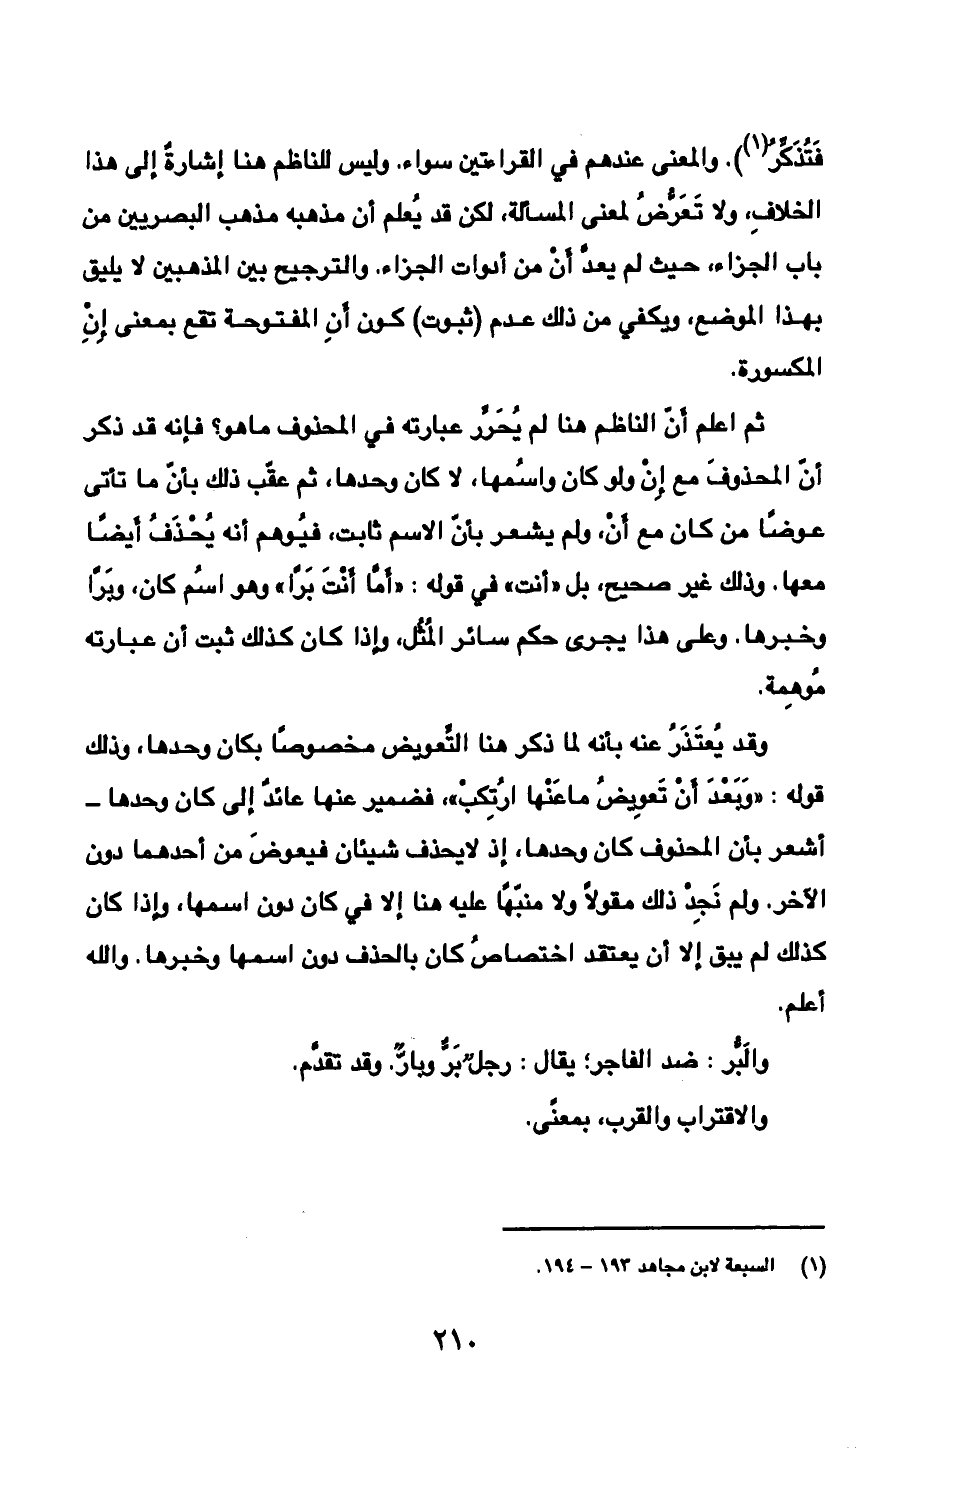 فَتُذَكِّرُ(١)). والمعنى عندهم في القراءتين سواء. وليس للناظم هنا إشارةٌ إلى هذا
الخلافِ، ولا تَعَرُّضُ لمعنى المسألة، لكن قد يُعلم أن مذهبه مذهب البصريين من
باب الجزاء، حيث لم يعدَّ أنْ من أدوات الجزاء. والترجيح بين المذهبين لا يليق
بهذا الموضع، ويكفي من ذلك عدم (ثبوت) كون أنِ المفتوحة تقع بمعنى إنْ
المكسورة.
ثم اعلم أنّ الناظم هنا لم يُحَرِّر عبارته في المحذوف ماهو؟ فإنه قد ذكر
أنّ المحذوفَ مع إنْ ولو كان واسُمها، لا كان وحدها، ثم عقّب ذلك بأنّ ما تأتى
عوضًا من كان مع أنْ، ولم يشعر بأنّ الاسم ثابت، فيُوهم أنه يُحْذَفُ أيضًا
معها. وذلك غير صحيح، بل «أنت» في قوله : «أمَّا أَنْتَ بَرًّا» وهو اسُم كان، وبَرًّا
وخبرها. وعلى هذا يجرى حكم سائر المُثُل، وإذا كان كذلك ثبت أن عبارته
مُوهِمة.
وقد يُعتَذَرُ عنه بأنه لما ذكر هنا التَّعويض مخصوصًا بكان وحدها، وذلك
قوله : «وَبَعْدَ أَنْ تَعوِيضُ ماعَنْها ارُتكِبْ»، فضمير عنها عائدٌ إلى كان وحدها ـ
أشعر بأن المحذوف كان وحدها، إذ لايحذف شيئان فيعوضَ من أحدهما دون
الآخر. ولم نَجِدْ ذلك مقولاً ولا منبّهًا عليه هنا إلا في كان دون اسمها، وإذا كان
كذلك لم يبق إلا أن يعتقد اختصاصُ كان بالحذف دون اسمها وخبرها. والله
أعلم.
والَبُّر : ضد الفاجر؛ يقال : رجلٌ بَرٌّ وبارٌّ. وقد تقدَّم.
والاقتراب والقرب، بمعنًى.
(١) السبعة لابن مجاهد ١٩٣ – ١٩٤.
٢١٠